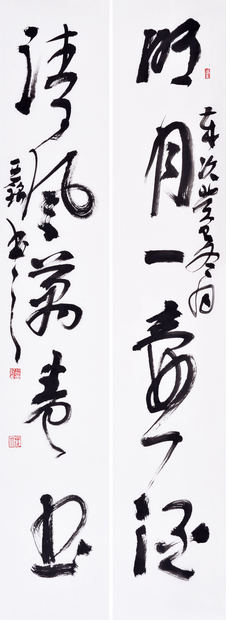 歲次癸巳冬月
明月一壺酒
清風萬卷書